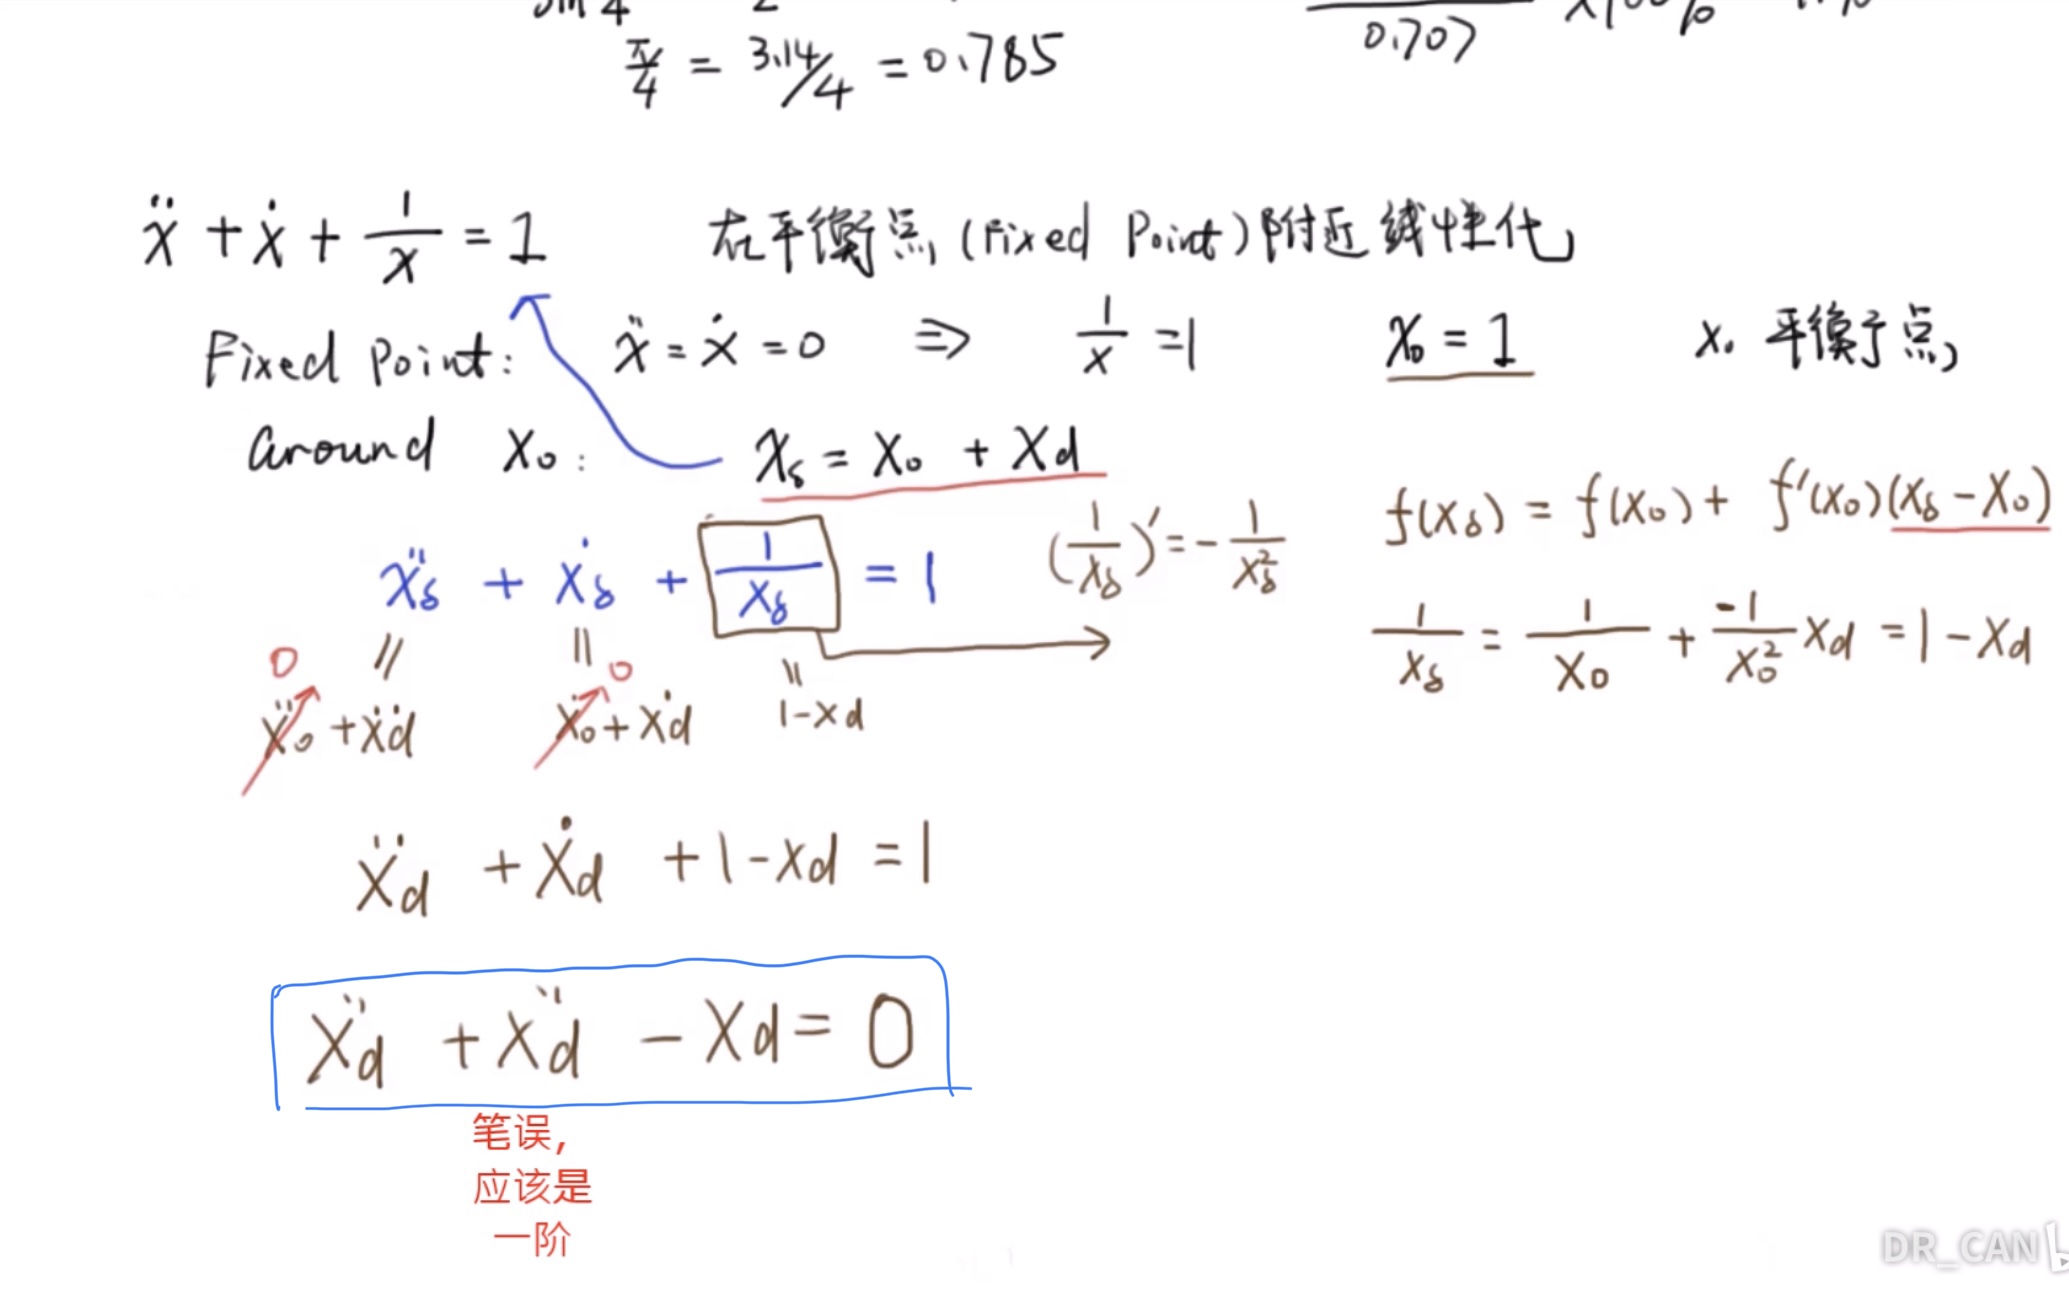 π/4 = 3.14/4 = 0.785
0.707
ẍ + ẋ + 1/x = 1 在平衡点 (Fixed Point) 附近线性化
Fixed Point: ẍ = ẋ = 0 ⇒ 1/x = 1 x₀ = 1 x₀ 平衡点
around x₀: x_δ = x₀ + x_d
f(x_δ) = f(x₀) + f'(x₀)(x_δ - x₀)
ẍ_δ + ẋ_δ + 1/x_δ = 1 (1/x_δ)' = - 1/x_δ²
1/x_δ = 1/x₀ + -1/x₀² x_d = 1 - x_d
0 = = 0 =
ẍ₀ + ẍ_d ẋ₀ + ẋ_d 1 - x_d
ẍ_d + ẋ_d + 1 - x_d = 1
ẍ_d + ẍ_d - x_d = 0
笔误，
应该是
一阶
DR_CAN